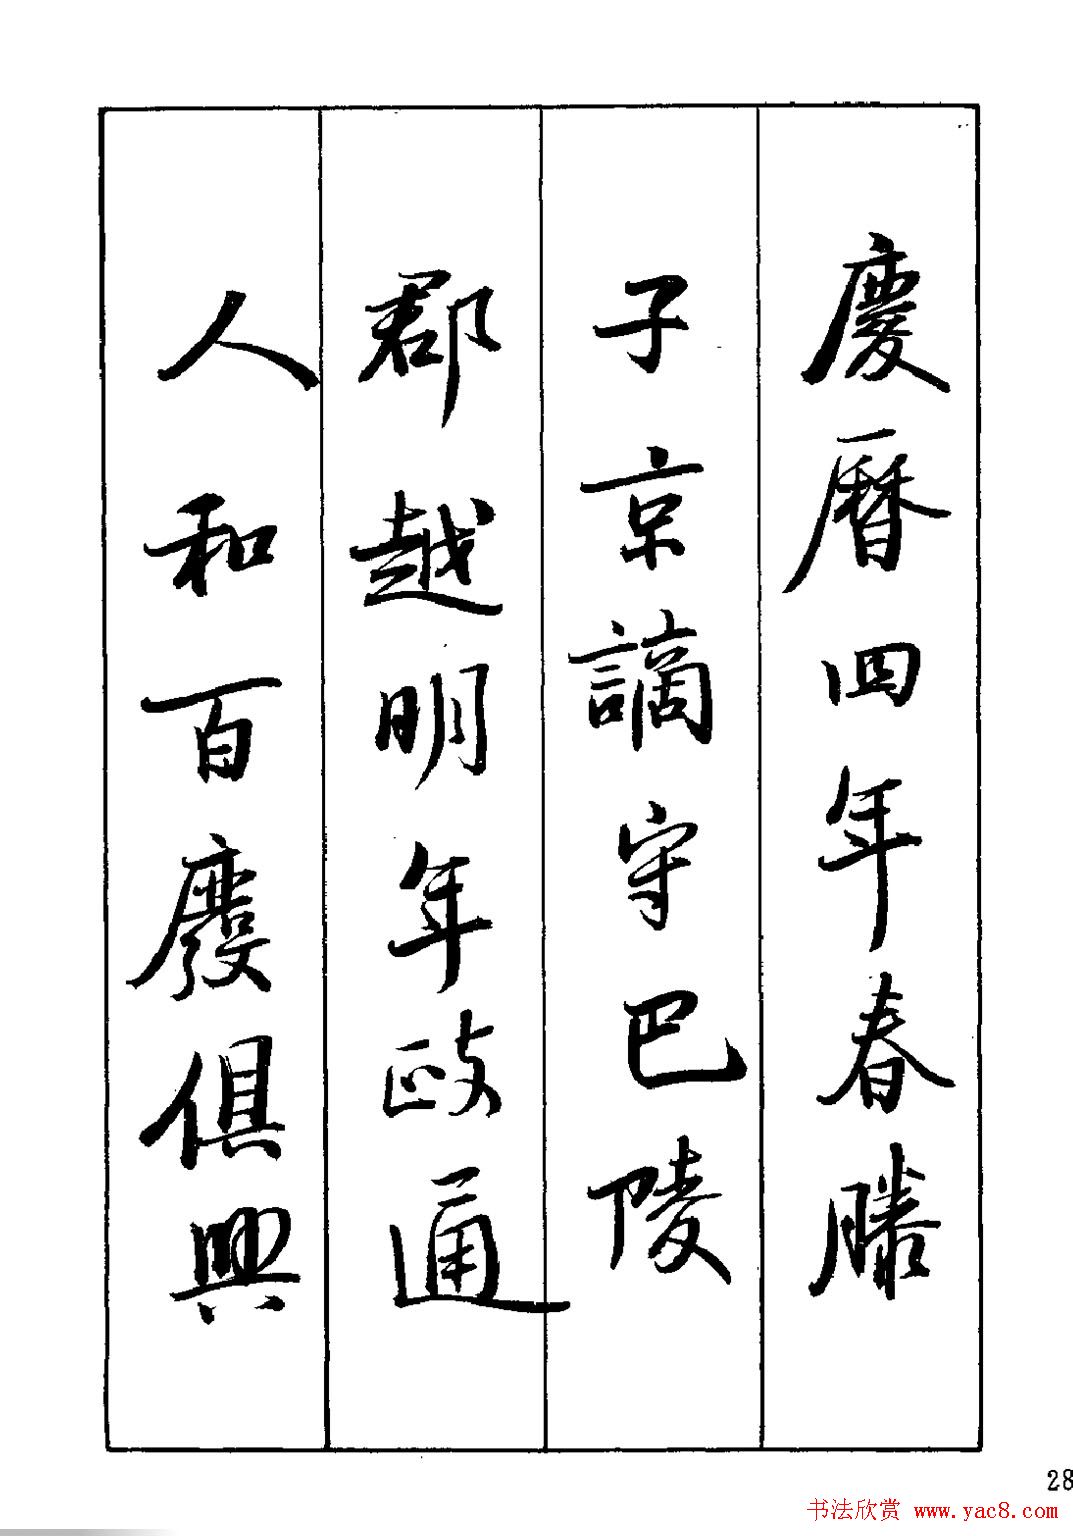 慶曆四年春滕
子京謫守巴陵
郡越明年政通
人和百廢俱興
28
书法欣赏 www.yac8.com